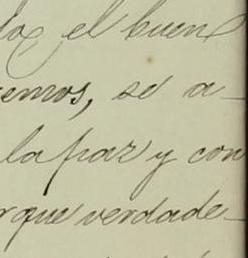 el buen
emos, se a-
la paz y con
rque verdade-